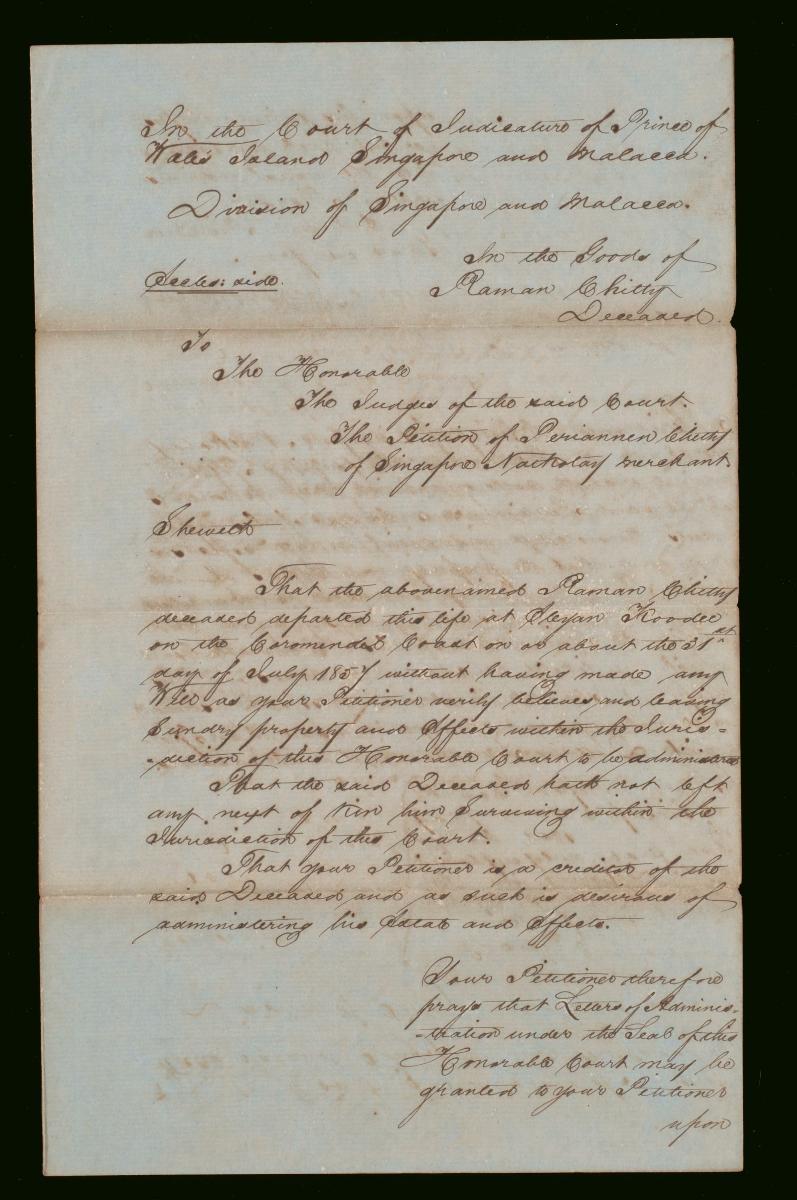 In the Court of Judicature of Prince of
Wales Island Singapore and Malacca.
Division of Singapore and Malacca.
In the Goods of
Eccles: side.
Raman Chitty
Deceased.
To
The Honorable
The Judges of the said Court.
The Petition of Periannen Chitty
of Singapore Merchant
Sheweth
That the abovenamed Raman Chitty
deceased departed this life at Koodee
on the Coromendel Coast on or about the 31st
day of July 1857 without having made any
Will as your Petitioner verily believes and leaving
Sundry property and Effects within the Juris-
-diction of this Honorable Court to be administered
That the said Deceased hath not left
any next of Kin him Surviving within the
Jurisdiction of this Court.
That your Petitioner is a creditor of the
said Deceased and as such is desirous of
administering his Estate and Effects.
Your Petitioner therefore
prays that Letters of Adminis-
-tration under the Seal of this
Honorable Court may be
granted to your Petitioner
upon